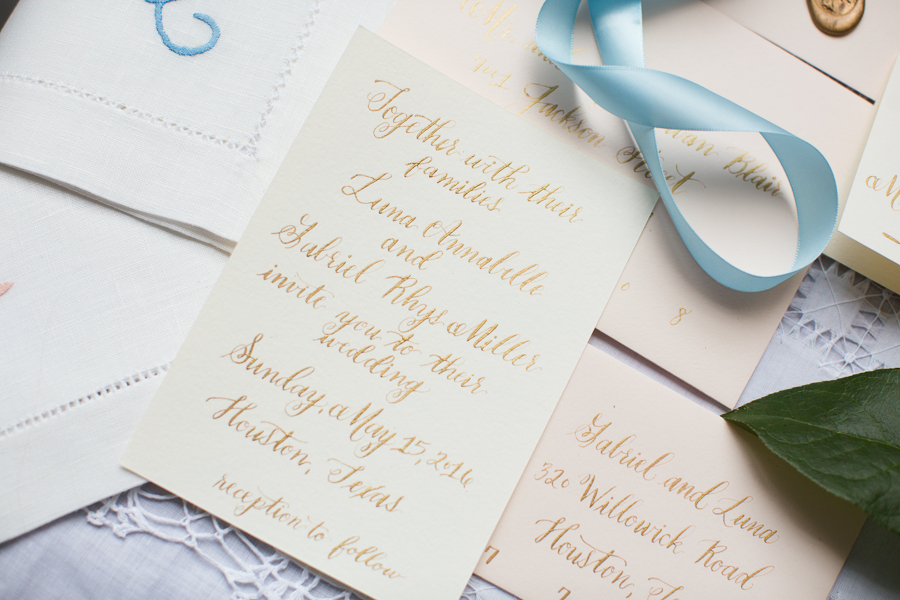 Together with their
families
Luna Annabelle
and
Gabriel Rhys Miller
invite you to their
wedding
Sunday, May 15, 2016
Houston, Texas
reception to follow
Jackson
Blair
8
Gabriel and Luna
320 Willowick Road
Houston,
7
7